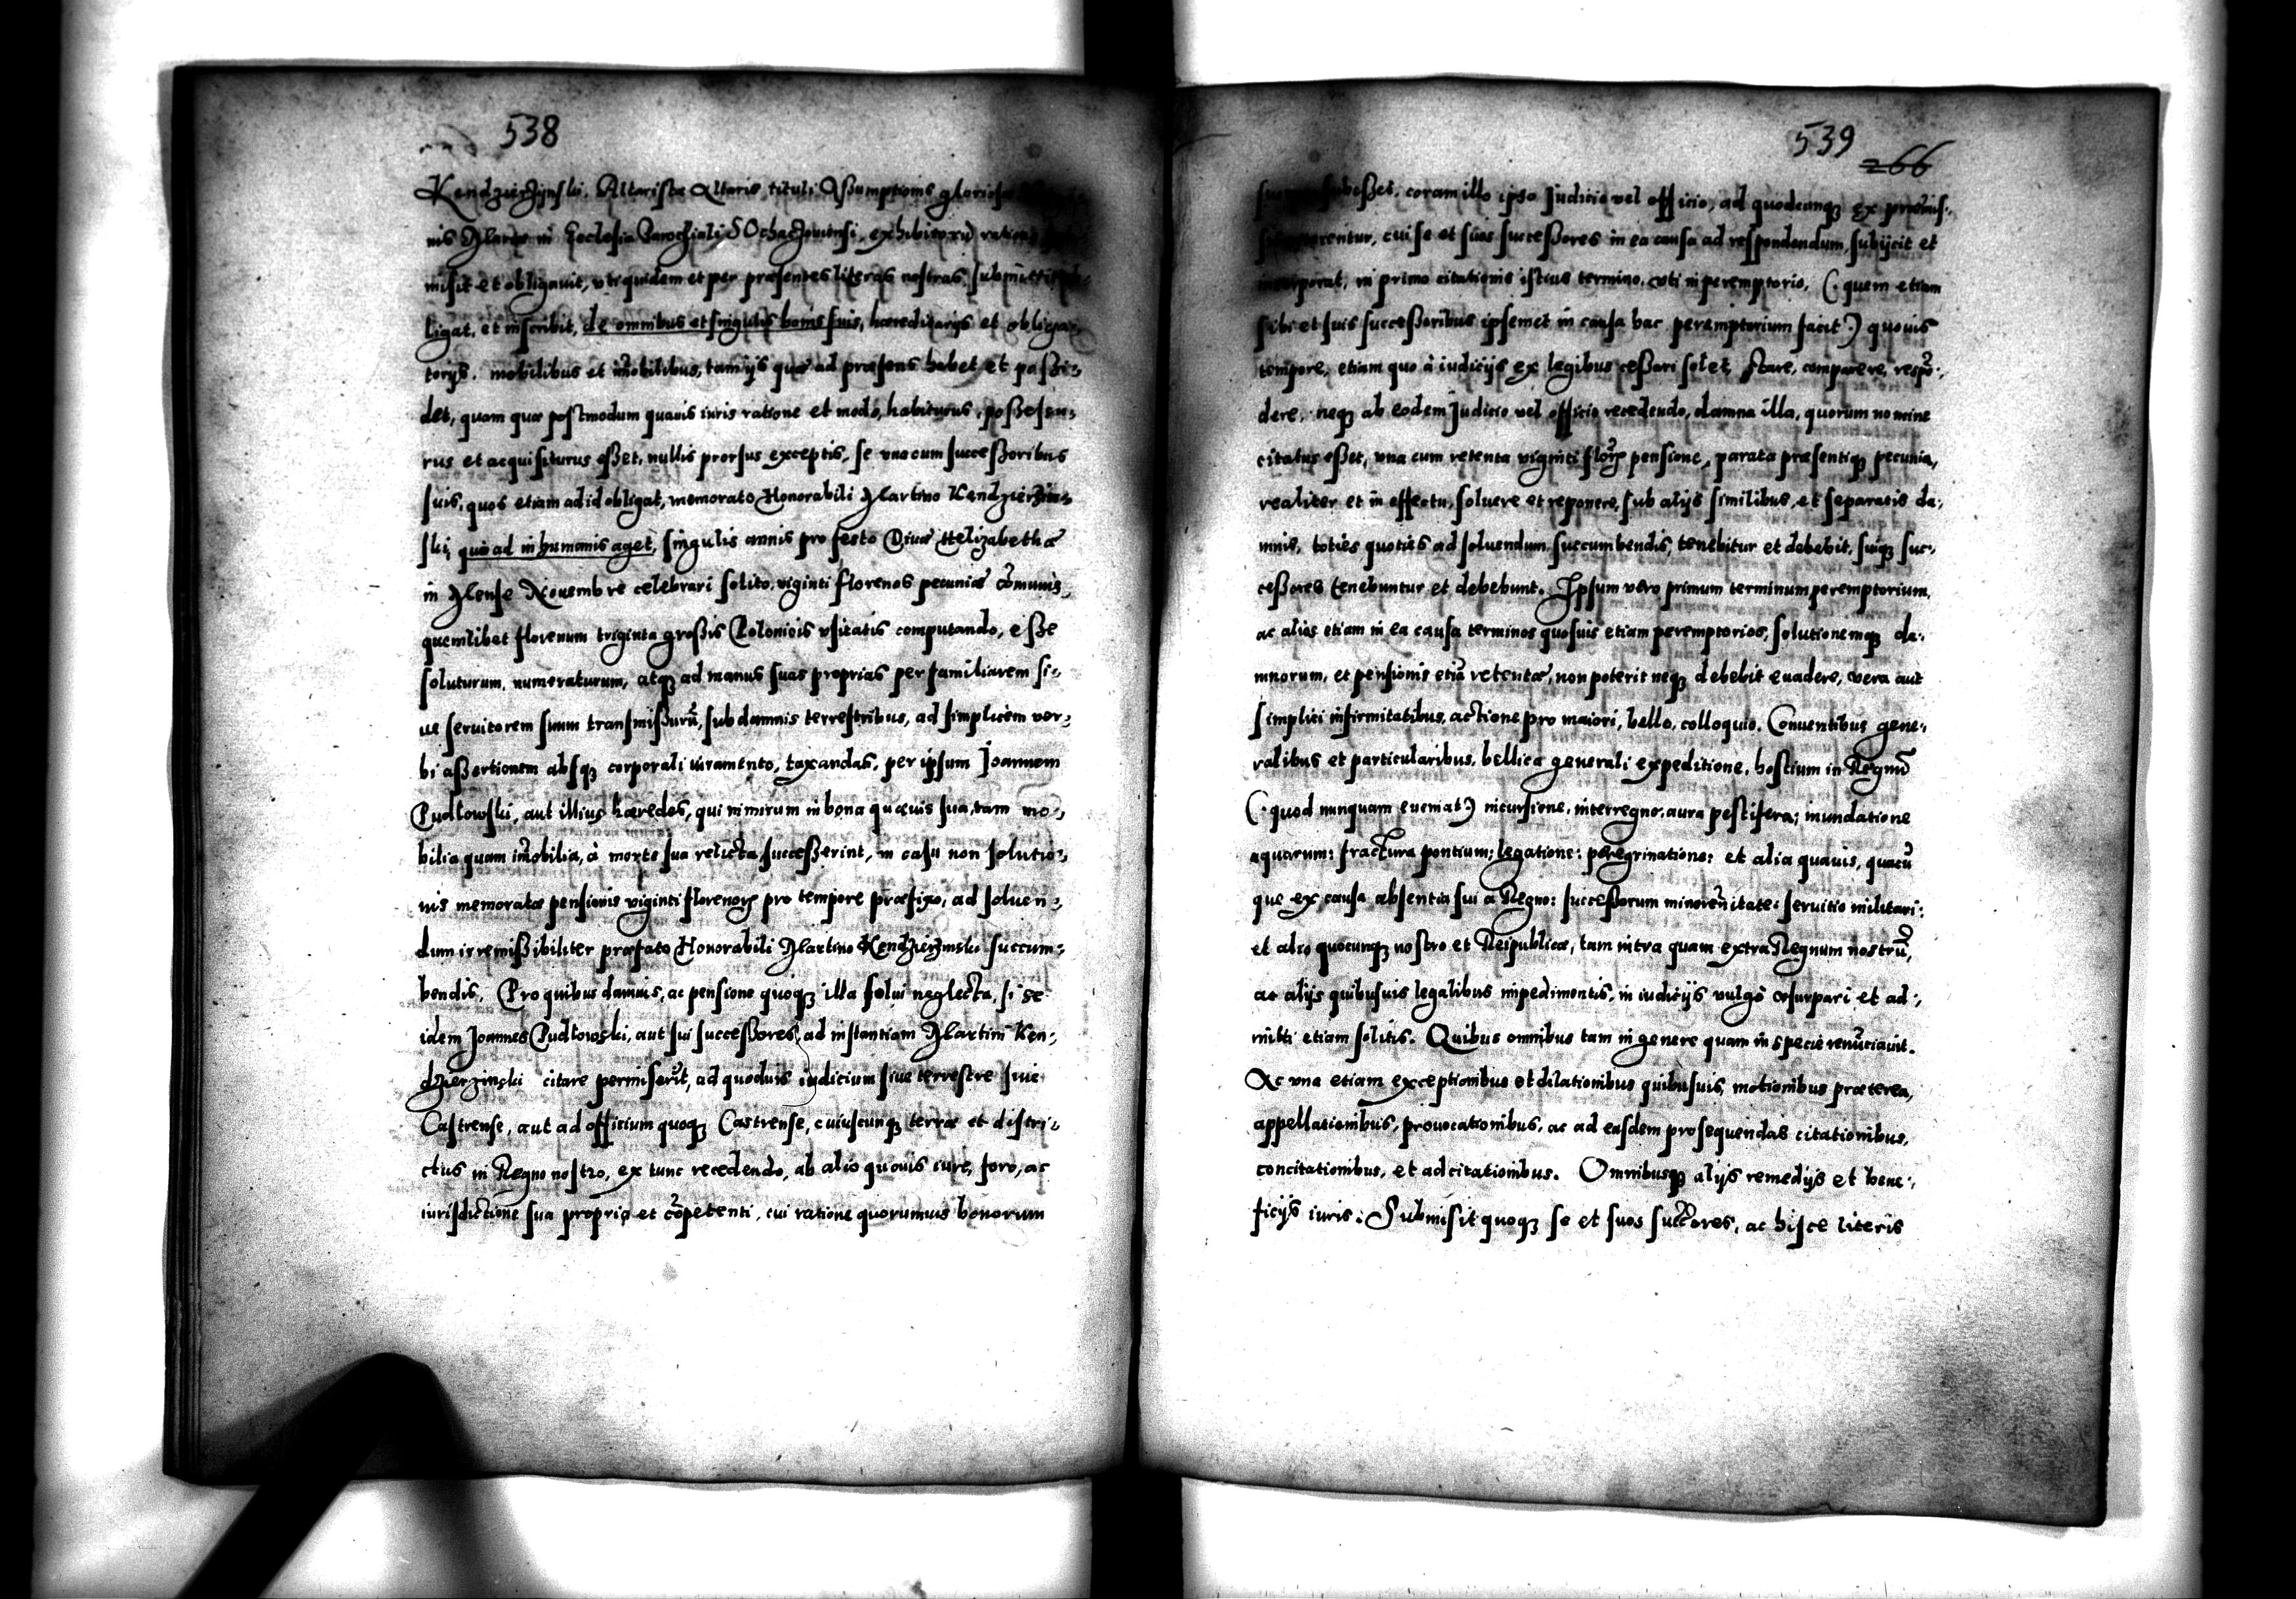 538
Kendzierzynski, Altarista Altaris, tituli Assumptionis gloriosæ
nis Mariæ in Ecclesia Parochiali Sochaczouiensi, exhibitorũ
misit et obligauit, vti quidem et per præsentes literas nostras submittit,
ligat, et inscribit, de omnibus et singulis bonis suis, hæreditarijs et obliga-
torijs, mobilibus et im̃obilibus, tam ijs quæ ad præsens habet et possi-
det, quam quæ postmodum quauis iuris ratione et modo, habiturus, possessu-
rus et acquisiturus esset, nullis prorsus exceptis, se vna cum successoribus
suis, quos etiam ad id obligat, memorato Honorabili Martino Kendzierzin-
ski, quo ad in humanis aget, singulis annis pro festo Diuæ Helizabethæ
in Mense Nouembre celebrari solito, viginti florenos pecuniæ com̃unis,
quemlibet florenum triginta grossis Polonicis vsitatis computando, esse
soluturum, numeraturum, atq; ad manus suas proprias per familiarem si-
ue seruitorem suum transmissurũ, sub damnis terrestribus, ad simplicem ver-
bi assertionem absq; corporali iuramento, taxandas, per ipsum Joannem
Pudlowski, aut illius hæredes, qui nimirum in bona quæuis sua, tam mo-
bilia quam im̃obilia, à morte sua relicta successerint, in casu non solutio-
nis memoratæ pensionis viginti florenorꝫ pro tempore præfixo, ad soluen-
dum irremissibiliter præfato Honorabili Martino Kendzierzinski succum-
bendis. Pro quibus damnis, ac pensione quoq; illa solui neglecta, si se
idem Joannes Pudlowski, aut sui successores, ad instantiam Martini Ken-
dzierzinski citare permiserĩt, ad quoduis iudicium siue terrestre siue
Castrense, aut ad officium quoq; Castrense, cuiuscunq; terræ et distri-
ctus in Regno nostro, ex tunc recedendo, ab alio quouis iure, foro, ac
iurisdictione sua propria et cõpetenti, cui ratione quorumuis bonorum
539
266
subesset, coram illo ipso Judicio vel officio, ad quodcunq; ex præmis-
cui se et suos successores in ea causa ad respondendum, subijcit et
incorporat, in primo citationis istius termino, vti in peremptorio, (: quem etiam
sibi et suis successoribus ipsemet in causa hac peremptorium facit :) quouis
tempore, etiam quo à iudicijs ex legibus cessari solet, stare, comparere, respõ-
dere, neq; ab eodem Judicio vel officio recedendo, damna illa, quorum nomine
citatus esset, vna cum retenta viginti florꝫ pensione, parata præsentiq; pecunia,
realiter et in effectu, soluere et reponere, sub alijs similibus, et separatis da-
mnis, toties quoties ad soluendum succumbendis, tenebitur et debebit, suiq; suc-
cessores tenebuntur et debebunt. Ipsum vero primum terminum peremptorium,
ac alios etiam in ea causa terminos quosuis etiam peremptorios, solutionemq; da-
mnorum, et pensionis etiã retentæ, non poterit neq; debebit euadere, vera aut
simplici infirmitatibus, actione pro maiori, bello, colloquio, Conuentibus gene-
ralibus et particularibus, bellica generali expeditione, hostium in Regnũ
(: quod nunquam eueniat :) incursione, interregno, aura pestifera; inundatione
aquarum; fractura pontium; legatione; peregrinatione; et alia quauis, quacũ
que ex causa absentia sui a Regno; successorum minorẽnitate; seruitio militari;
et alio quocunq; nostro et Reipublicæ, tam intra quam extra Regnum nostrũ,
ac alijs quibusuis legalibus impedimentis, in iudicijs vulgò vsurpari et ad-
mitti etiam solitis. Quibus omnibus tam in genere quam in specie renũciauit.
Ac vna etiam exceptionibus et dilationibus quibusuis, motionibus præterea,
appellationibus, prouocationibus, ac ad easdem prosequendas citationibus,
concitationibus, et adcitationibus. Omnibusq; alijs remedijs et bene-
ficijs iuris. Submisit quoq; se et suos succ̃ores, ac hisce literis